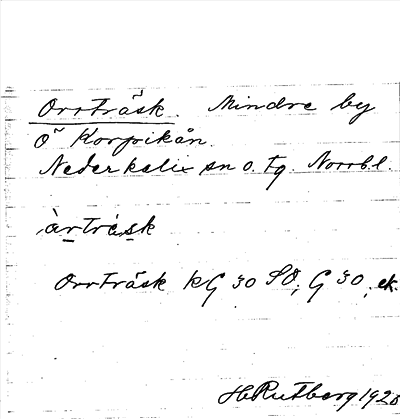 Orrträsk. Mindre by
Ö Korpikån.
Nederkalix sn o. tg. Norrb. l.
àrtrásk
Orrträsk KG 30 SO; G 30, ek.
H Rutberg 1928